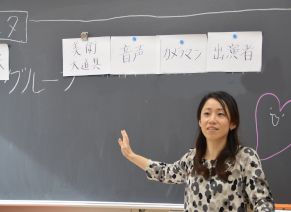 美術
大道具
音声
カメラマン
出演者
グループ